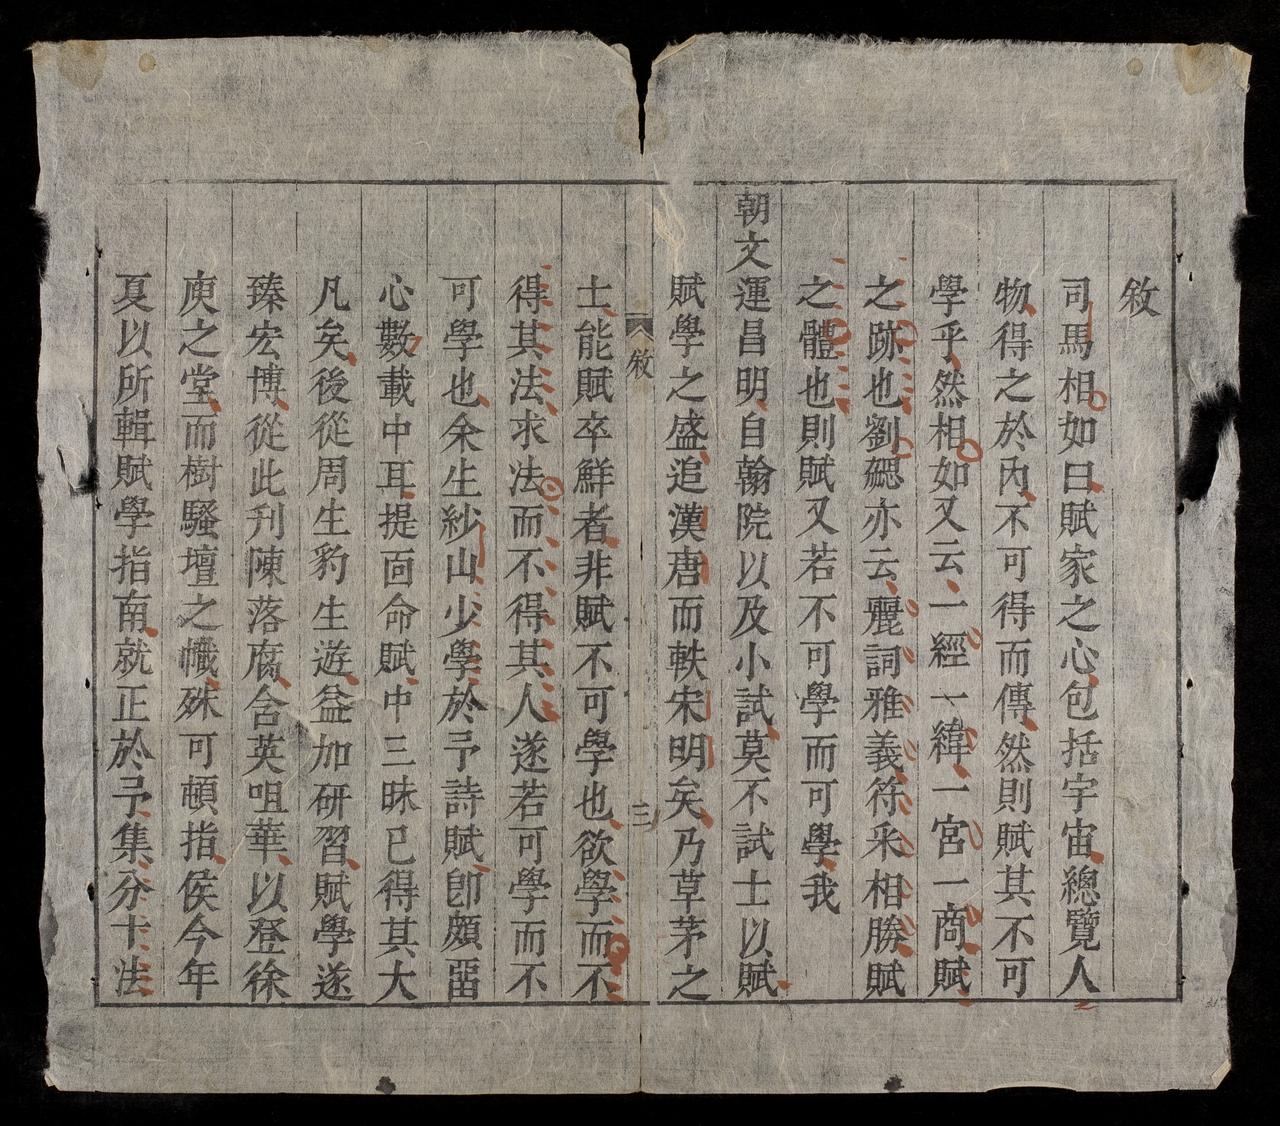 敘
司馬相如曰賦家之心包括宇宙總覽人
物得之於內不可得而傳然則賦其不可
學乎然相如又云一經一緯一宮一商賦
之跡也劉勰亦云麗詞雅義符采相勝賦
之體也則賦又若不可學而可學我
朝文運昌明自翰院以及小試莫不試士以賦
賦學之盛追漢唐而軼宋明矣乃草茅之
敘
三
士能賦卒鮮者非賦不可學也欲學而不
得其法求法而不得其人遂若可學而不
可學也余生紗山少學於予詩賦卽頗畱
心數載中耳提面命賦中三昧已得其大
凡矣後從周生豹生遊益加研習賦學遂
臻宏博從此刋陳落腐含英咀華以登徐
庾之堂而樹騷壇之幟殊可頓指侯今年
夏以所輯賦學指南就正於予集分十法